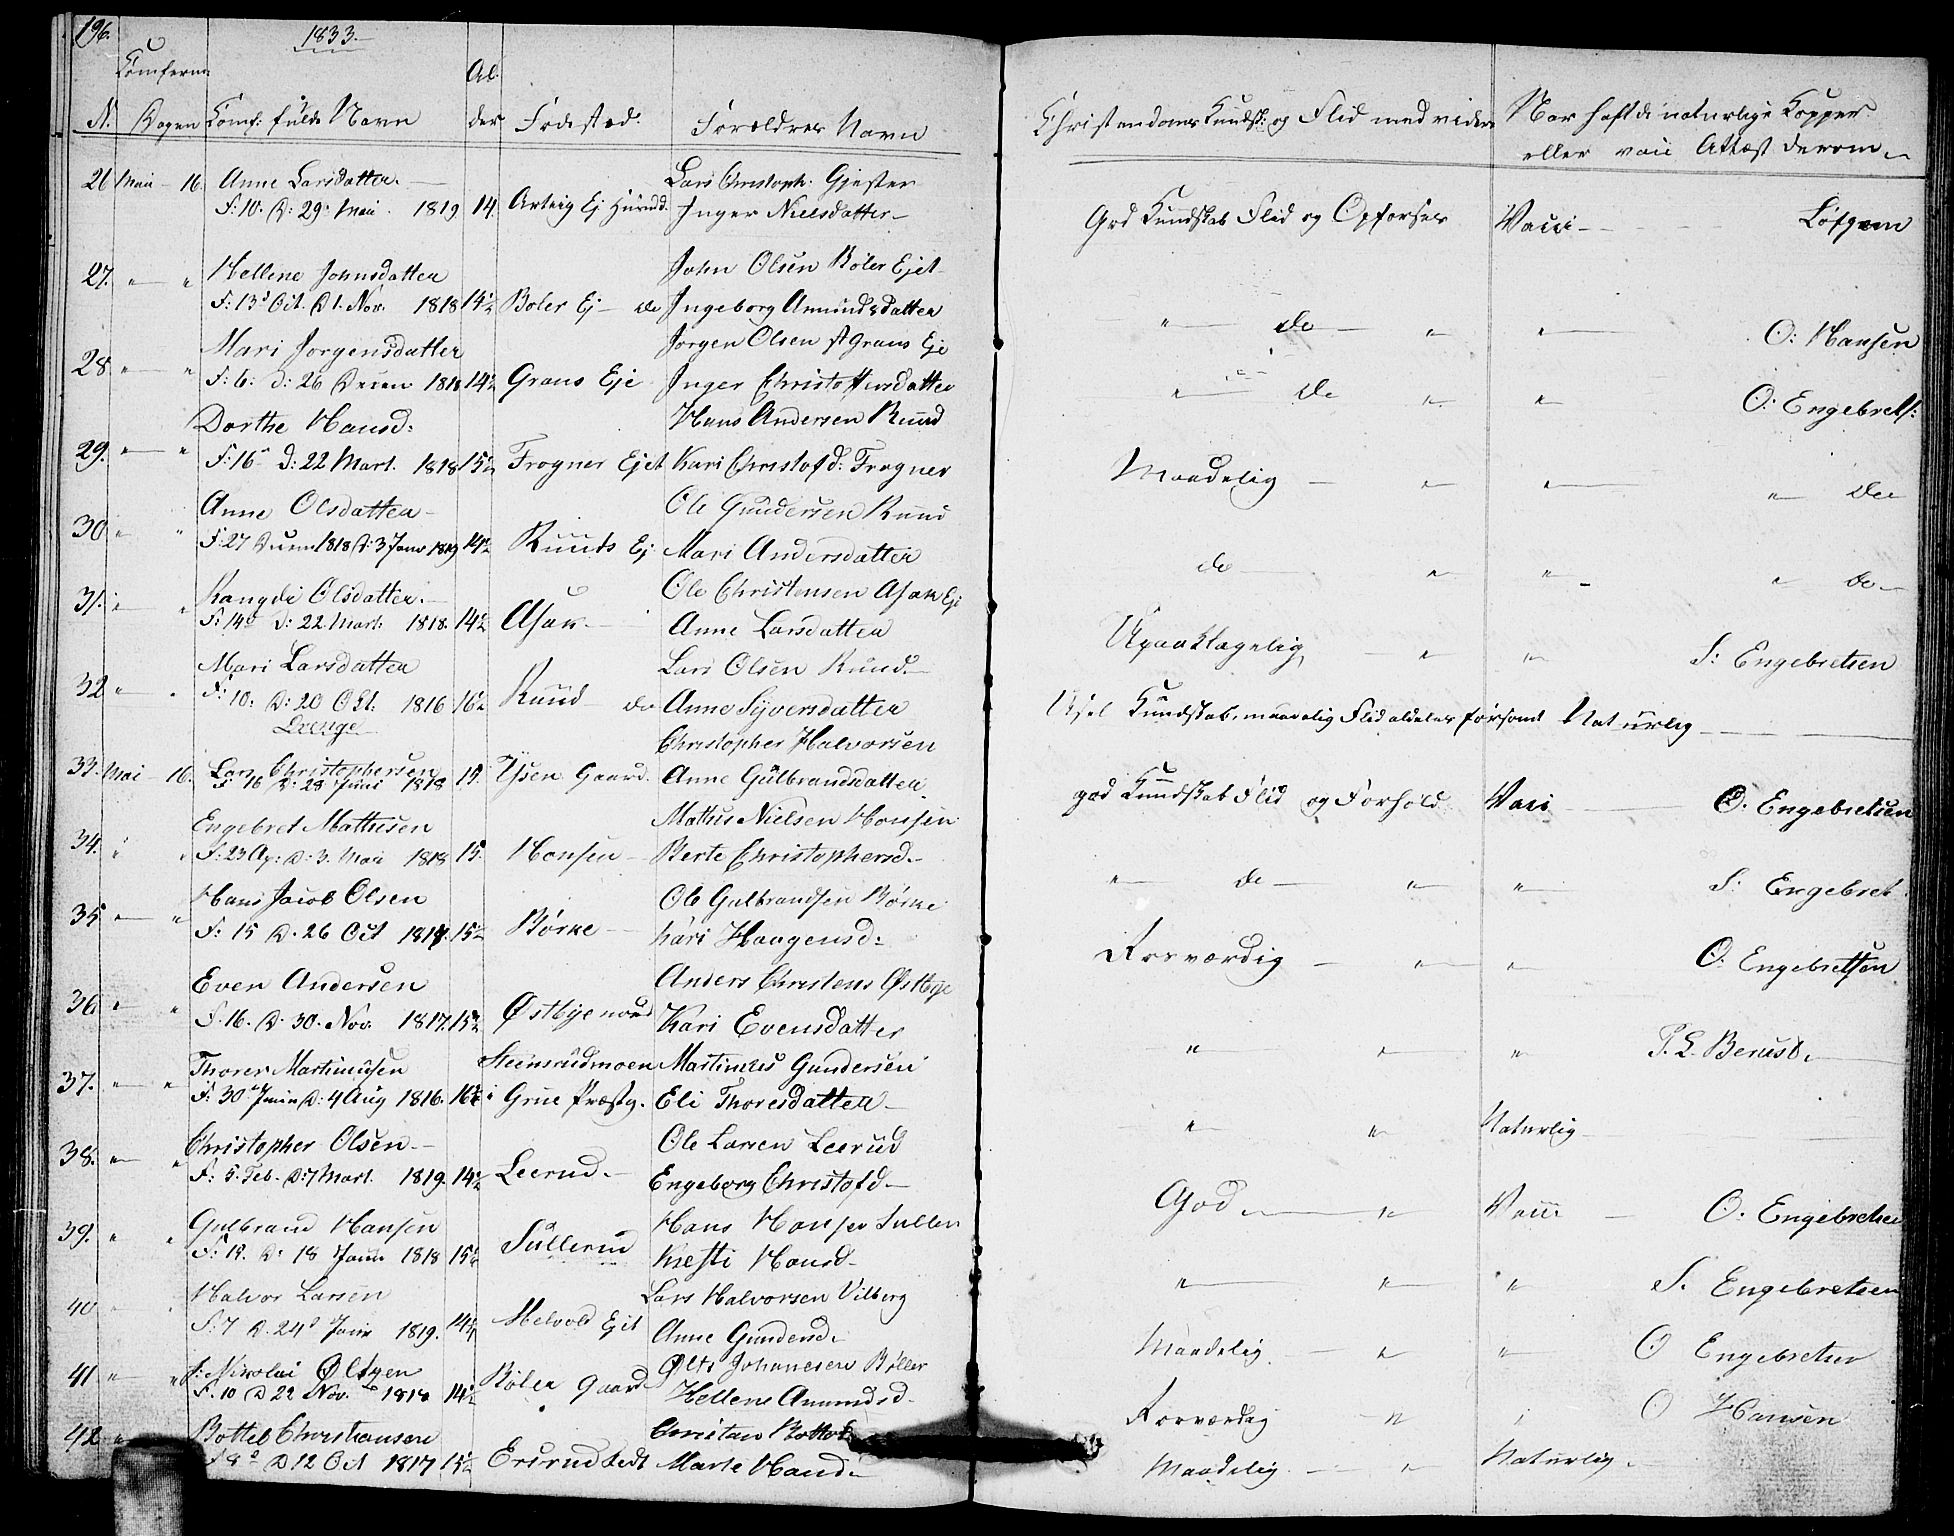 196.
1833.
Confirm: Al
N. Dagen Conf: fulde Navn der Fødested. Forældres Navn Christendoms Kundsk: og Flid med videre Nar haft de naturlige Kopper
eller vacc Attest derom
26 Mai 16. Anne Larsdatter. Lars Christoph. Gjester
F: 10. D: 29 Mai 1819 14. Arteig Ej Jnger Nielsdatter God Kundskab Flid og Opførsel Vacci Løfgren
27. " " Hellene Johnsdatter John Olsen Boler Ejet
F: 13 Oct. D 1. Nov. 1818 14½ Boler Ej do Jngeborg Amundsdatter " do " " O: Hansen
28 " " Mari Jorgensdatter Jorgen Olsen Grans Eje
F: 6: D: 26 1818 14½ Grans Eje Jnger Christoffersdatter " do " " O: Engebrets:
29. " " Dorthe Hansd: Hans Andersen Ruud
F: 16 D: 22 Mart. 1818 15 Frogner Ejet Kari Christofd: Frogner Maadelig " " " do
30 " " Anne Olsdatter Ole Gundersen Ruud
F: 27 1818 D: 3 Janr 1819 14½ Ruuds Ej Mari Andersdatter do " " " do
31. " " Rangdi Olsdatter. Ole Christensen Asak Eje
F: 14 D: 22 Mart: 1818. 14½ Asak Anne Larsdatter Upaaklagelig " " S: Engebretsen
32 " " Mari Larsdatter Lars Olsen Ruud
F: 10: D: 20 Okt: 1816 16½ Ruud do Anne Syversdatter Usel Kundskab, maadelig Flid aldeles forsømt Naturlig
Drenge
33. Mai 16. Lars Christophersen Christopher Halvorsen
F 16 D: 28 Juni 1818 15. Ysen Gaard. Anne Gulbrandsdatter god Kundskab Flid og Forhold Vaci O. Engebretsen
34. " " Engebret Mathisen Mathis Nielsen Honsen
F: 23 Ap: D: 3. Mai 1818 15. Honsen Berte Christophersd. " do " " S: Engebret
35 " " Hans Jacob Olsen Ole Gulbrandsen Børke
F: 15 D. 26 Oct 1817. 15½ Børke Kari Haagensd: Rosværdig " " O. Engebretsen
36 " " Even Andersen Anders Christens Østbye
F. 16. D. 30. Nov. 1817. 15½ Østbye nord Kari Evensdatter " " " P. L. Berust.
37. " " Thorer Martinusen Steensrudmoen Martinus Gundersen
F: 30 Juni D: 4 Aug 1816. 16¾ i Grue Præstg. Eli Thoresdatter " " Naturlig
38. " " Christopher Olsen Ole Larsen Leerud
F: 5. Feb. D: 7 Mart. 1819. 14½ Leerud. Engeborg Christofd God " Vacci O. Engebretsen
39. " " Gulbrand Hansen Hans Hansen Suller
F: 12. D: 18 Janu 1818 15½ Sullerud Kiesti Hansd " " " S. Engebretsen
40 " " Halvor Larsen Lars Halvorsen Vilberg
F: 7 D. 24 Janr 1819. 14¼ Melvold Ejet Anne Gundersd. Maadelig " " O Engebretsen
41 " " Nikolai Olsen Ole Johanesen Bøller
F. 10 D 22 Nov. 1818 14½ Böler gaard Hellene Amundsd. Rosværdig " " O Hansen
42 " Bottel Christiansen Christian Bottels
F 8 D 12 Oct 1817 15½ Ersrud Marte Hansd. Maadelig " Naturlig.